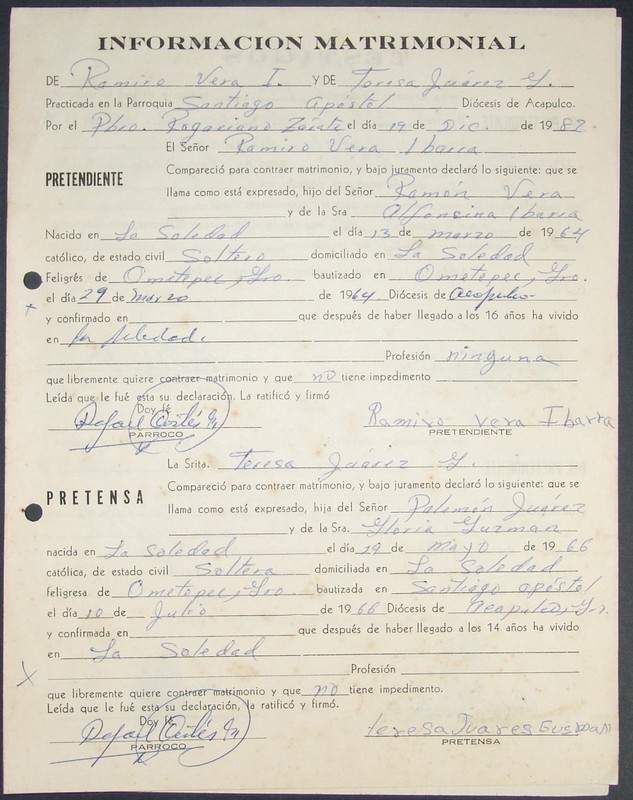 INFORMACION MATRIMONIAL
DE Ramiro Vera I. Y DE Teresa Juárez G.
Practicada en la Parroquia Santiago Apóstol Diócesis de Acapulco.
Por el Pbro. Rogaciano Zárate el día 19 de Dic. de 1982
El Señor Ramiro Vera Ibarra
PRETENDIENTE
Compareció para contraer matrimonio, y bajo juramento declaró lo siguiente: que se
llama como está expresado, hijo del Señor Ramón Vera
y de la Sra Alfonsina Ibarra
Nacido en La Soledad el día 13 de marzo de 1964
católico, de estado civil Soltero domiciliado en La Soledad
Feligrés de Ometepec, Gro. bautizado en Ometepec, Gro.
el día 29 de Marzo de 1964 Diócesis de Acapulco
y confirmado en que después de haber llegado a los 16 años ha vivido
en La Soledad.
Profesión ninguna
que libremente quiere contraer matrimonio y que no tiene impedimento
Leída que le fué esta su declaración. La ratificó y firmó
Doy fé
Rafael Cortés
PARROCO
Ramiro Vera Ibarra
PRETENDIENTE
La Srita. Teresa Juárez G.
PRETENSA
Compareció para contraer matrimonio, y bajo juramento declaró lo siguiente: que se
llama como está expresado, hija del Señor Palemón Juárez
y de la Sra. Gloria Guzman
nacida en La Soledad el día 29 de mayo de 1966
católica, de estado civil Soltera domiciliada en La Soledad
feligresa de Ometepec, Gro bautizada en Santiago apóstol
el día 10 de Julio de 1966 Diócesis de Acapulco, Gr.
y confirmada en que después de haber llegado a los 14 años ha vivido
en La Soledad
Profesión
que libremente quiere contraer matrimonio y que no tiene impedimento.
Leída que le fué esta su declaración, la ratificó y firmó.
Doy fé
Rafael Cortés
PARROCO
teresa Juares Gusman
PRETENSA